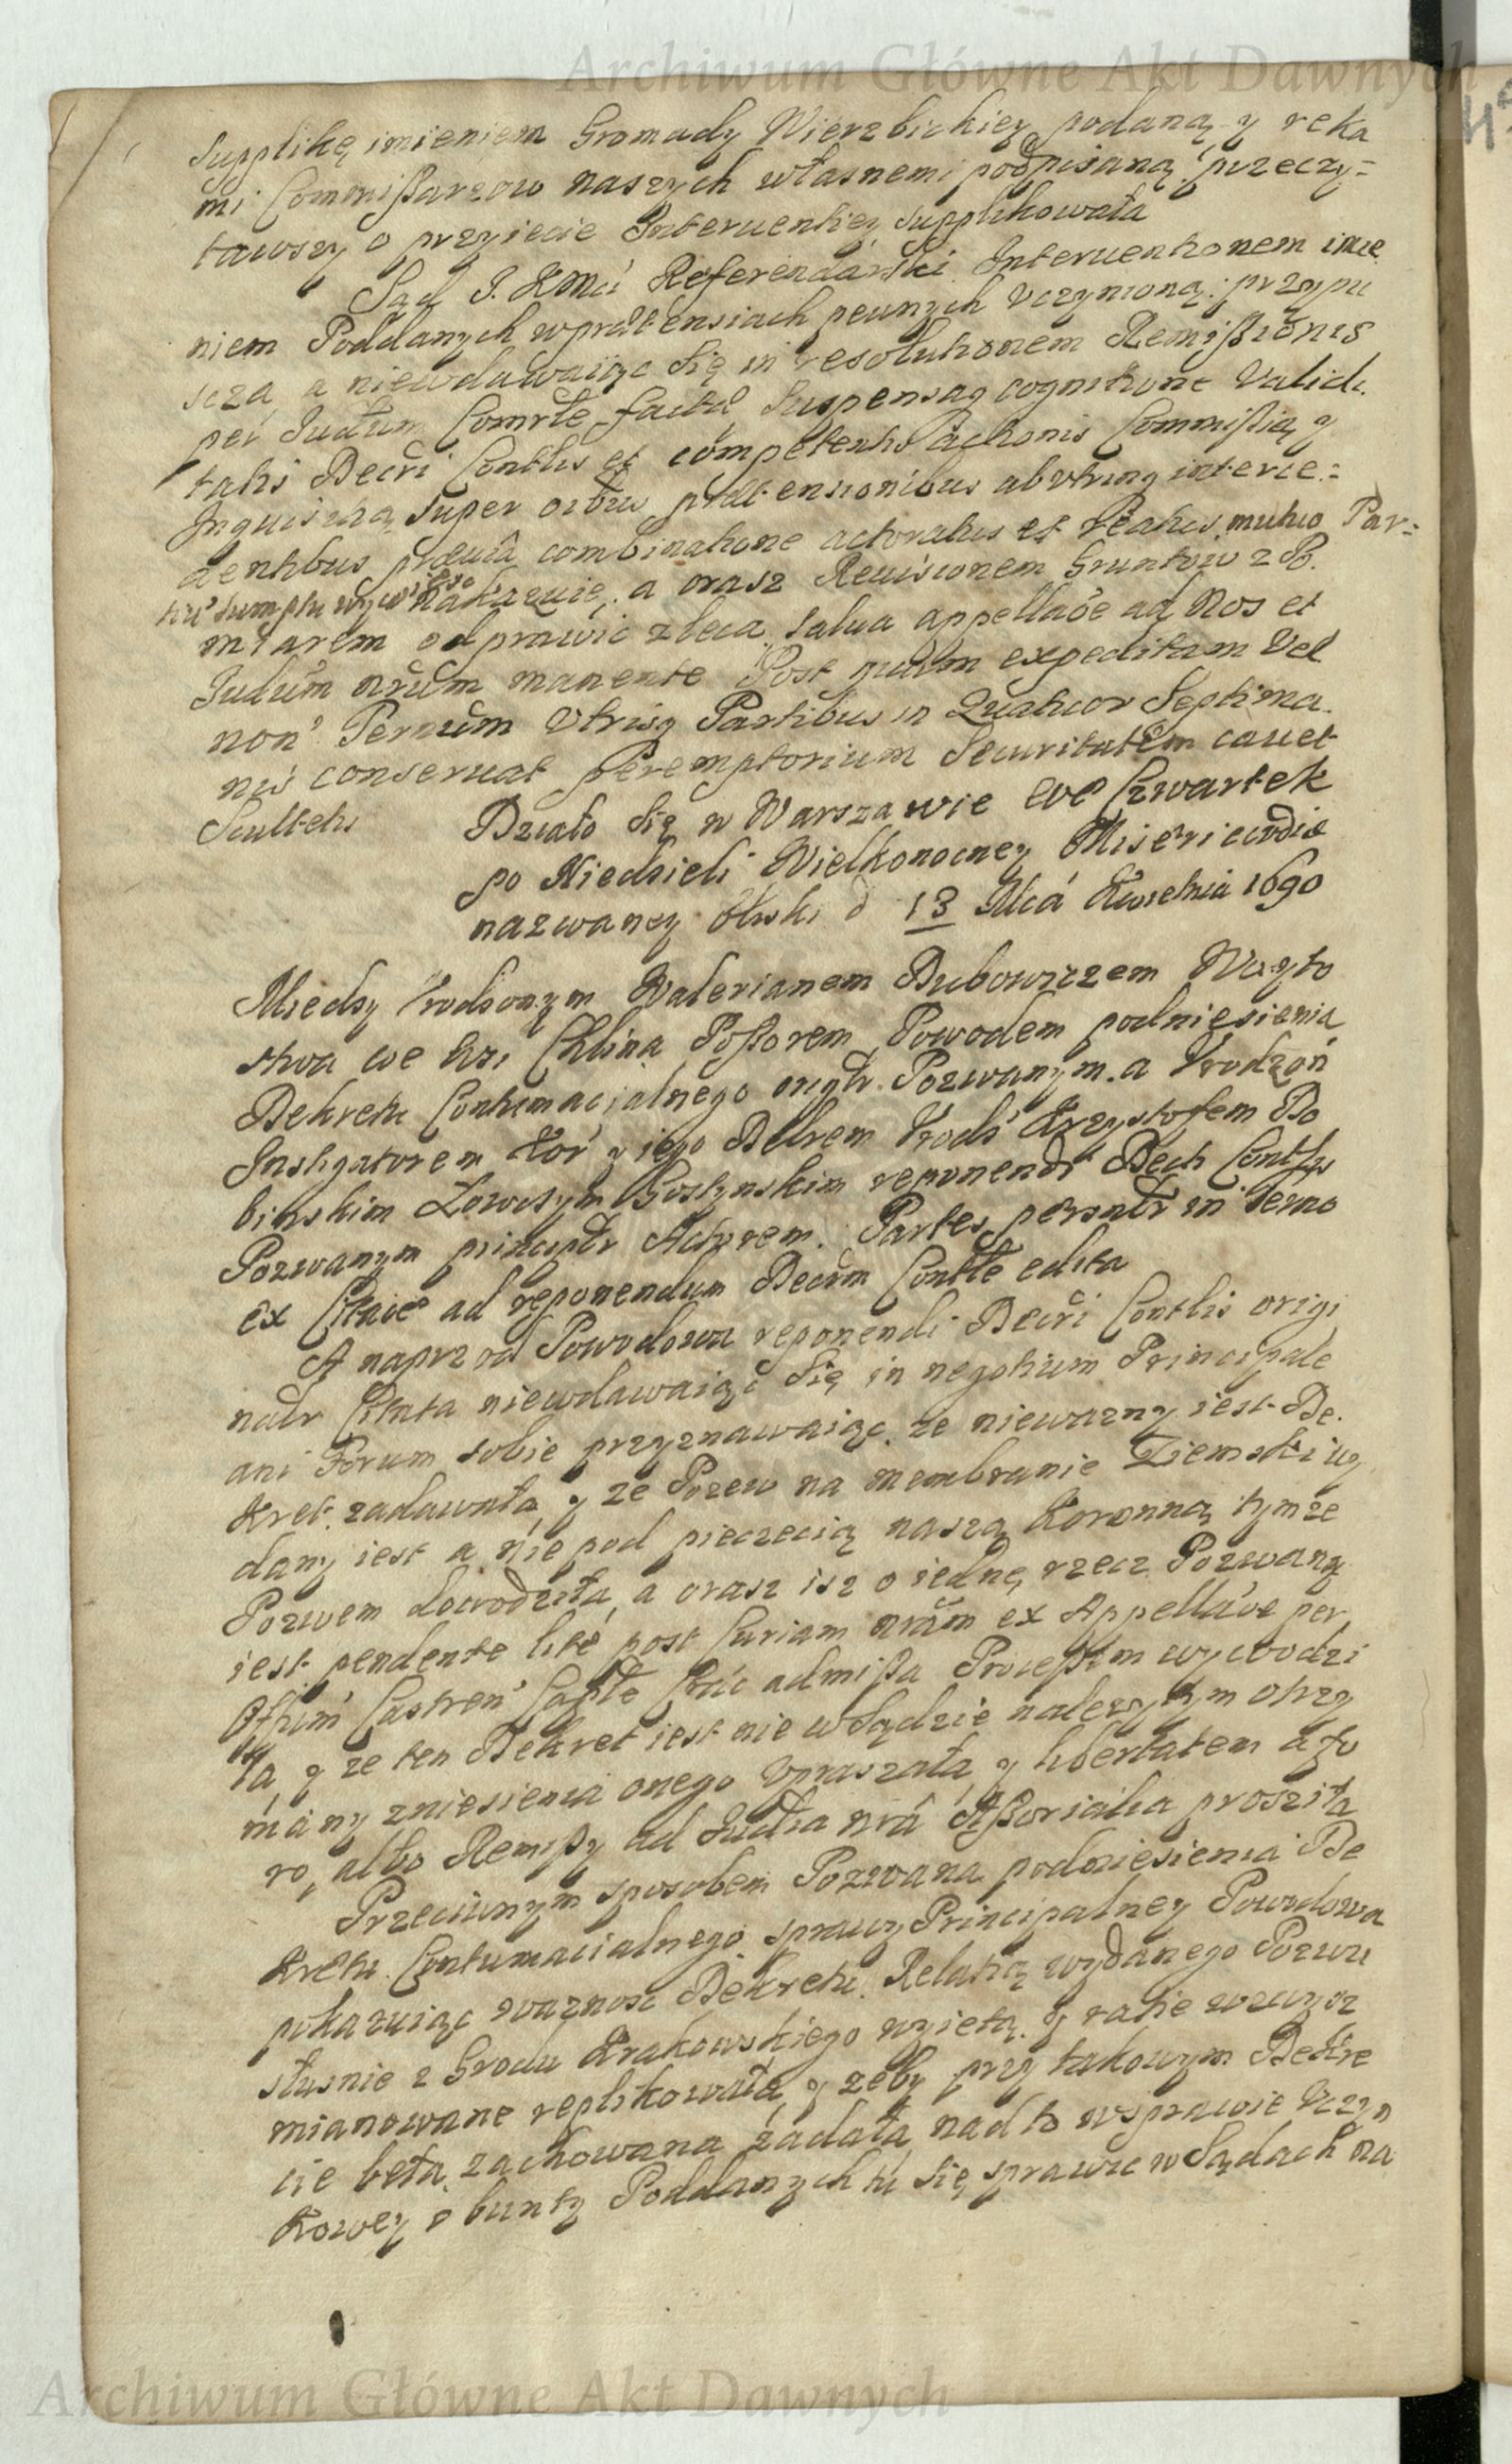 Archiwum Główne Akt Dawnych
Supplikę imieniem Gromady Wierzbickiey podaną y reka
mi Commißarzow naszych własnemi podpisaną przeczy=
tawszy o przyiecie Interuentiey supplikowała
Sąd J. K Mci Referendarski Interuentionem imie
niem Poddanych w praetensiach pewnych vczynioną przypu
scza a niewdawaiąc się in resolutionem Remißionis
per Judium Comrle factae, suspensaq cognitione Validi
tatis Decri Contlis et competentis actionis Commißią y
Inquisitią super oibus praetensionibus abvtrinq interce=
dentibus praeuia combinatione actoratus et reatus mutuo Par=
tiu sumptu wywiesc nakazuie, a orasz Reuisionem Gruntow z Po
miarem odprawic zleca salua appellaoe ad Nos et
Judium nrum manente Post quam expeditam vel
non Terminum vtrisq Partibus in Quatuor Septima
nis conseruat peremptorium Securitatem cauet
Sculteti
Działo się w Warszawie we Czwartek
po Niedzieli Wielkonocney Misericordiae
nazwaney bliski d 13 Mca Kwietnia 1690
Miedzy Vrodzonym Walerianem Dubowiczem Woyto
stwa we Wsi Chlina Poßorem Powodem podniesienia
Dekretu Contumacialnego origlr. Pozwanym. a Vrodzon
Instigatorem Kor y iego Delrem Vrodz Krzysztofem Do
binskim Łowczym Gostynskim reponendi Decti Contlis
Pozwanym principlr Actorem. Partes persntr in termo
ex Citaoe ad reponendum Decrm Contle edita
A naprzod Powodowa reponendi Decri Contlis origi
nalr Citata niewdawaiąc się in negotium Principale
ani Forum sobie przyznawaiąc, ze niewazny iest De
kret zadawała, y ze Pozew na membranie Ziemskiey wy
dany iest a nie pod pieczecią naszą Koronną tymze
Pozwem dowodziła, a orasz isz o iednę rzecz Pozwany
iest pendente lite post Curiam nram ex Appellaoe per
Offium Castren Caple Crac admißa Proceßem wywodzi
ła, y ze ten Dekret iest nie w Sądzie nalezytym otrzy
many zniesienia onego vpraszała, y libertatem a fo
ro, albo Remißy ad Judia nra Aßorialia prosziła
Przeciwnym sposobem Pozwana podniesienia De
kretu Contumacialnego. sprawy Principalney Powodowa
pokazuiąc wazność Dekretu. Relatią wydanego Pozwu
słusnie z Grodu Krakowskiego wzietą. y ratie wzwysz
mianowane replikowała, y zeby przy takowym Dekre
cie beła zachowana żadała, nad to w sprawie vczyn
kowey o bunty Poddanych tu się sprawic w Sądach na
Archiwum Główne Akt Dawnych